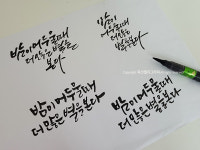 밤이 어두울때
더 많은 별을
본다
밤이
어두울때
더 많은
별을본다
밤이 어두울때
더 많은 별을 본다
밤이 어두울때
더 많은 별을 본다